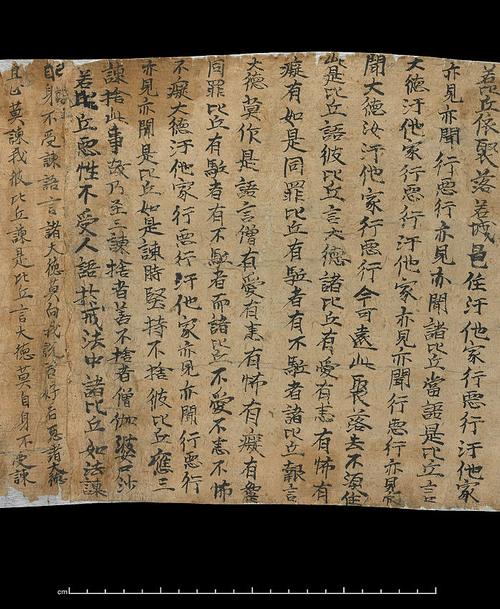 若比丘依聚落若城邑住汙他家行惡行汙他家
亦見亦聞行惡行亦見亦聞諸比丘當語是比丘言
大德汙他家行惡行汙他家亦見亦聞行惡行亦見
聞大德汝汙他家行惡行今可遠此聚落去不須住
此是比丘語彼比丘言大德諸比丘有愛有恚有怖有
癡有如是同罪比丘有駈者有不駈者諸比丘報言
大德莫作是語言僧有愛有恚有怖有癡有
同罪比丘有駈者有不駈者而諸比丘不愛不恚不怖
不癡大德汙他家行惡行汙他家亦見亦聞行惡行
亦見亦聞是比丘如是諫時堅持不捨彼比丘應三
諫捨此事故乃至三諫捨者善不捨者僧伽婆尸沙
若比丘惡性不受人語於戒法中諸比丘如法諫
已自身不受諫語言諸大德莫向我說若好若惡諸大德
且止莫諫我彼比丘諫是比丘言大德莫自身不受諫
cm